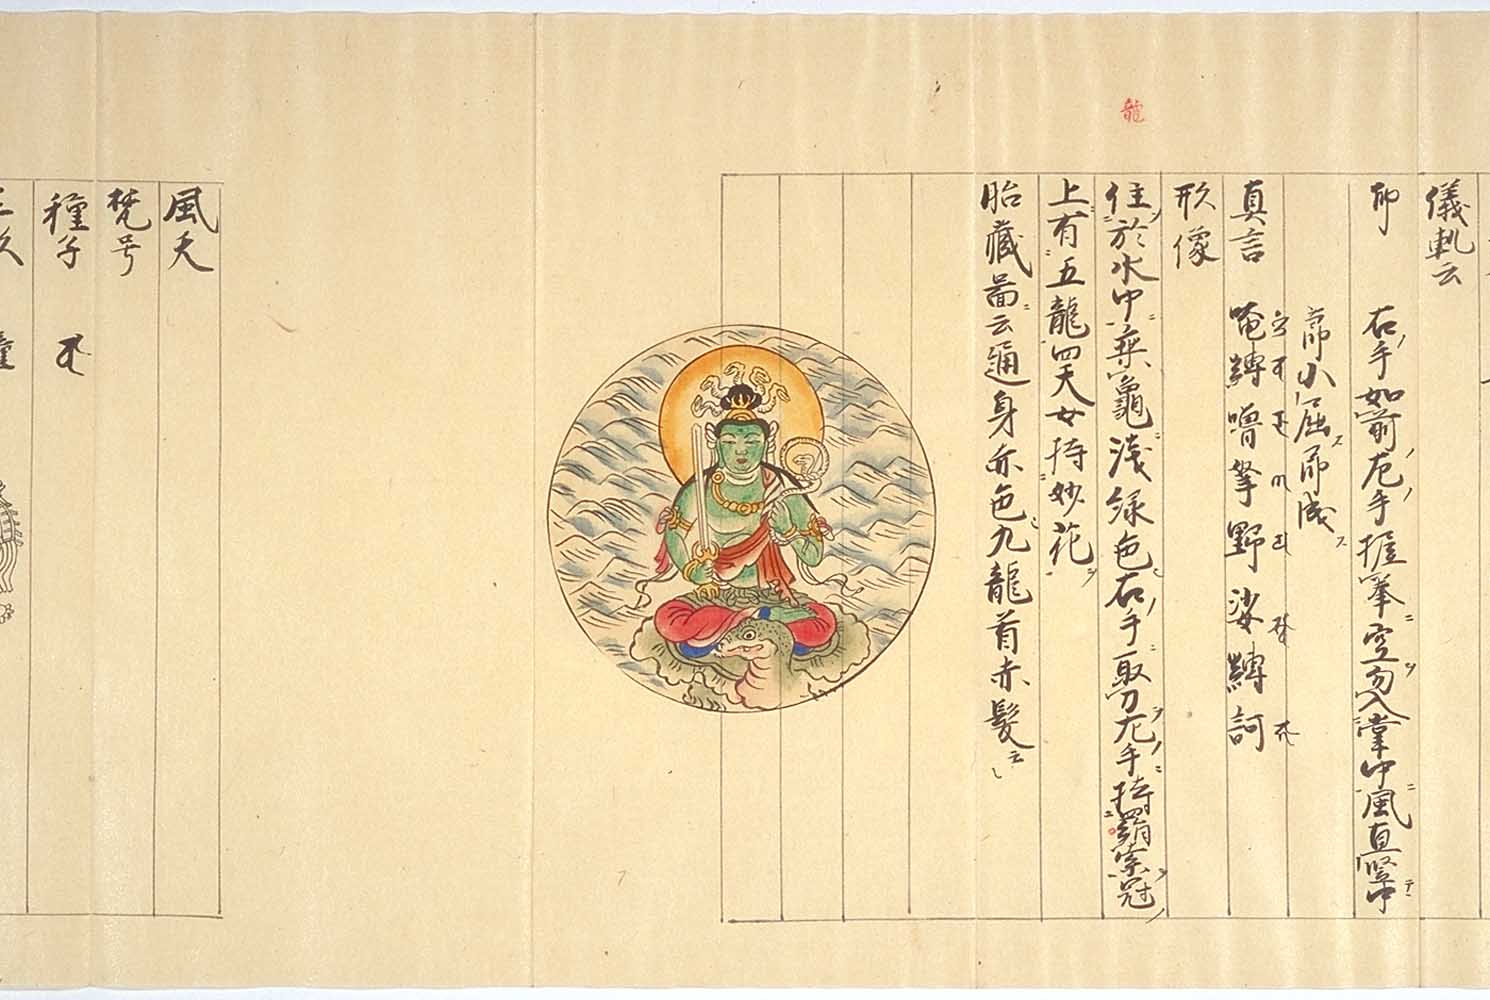 龍
儀軌云
印 右手如前左手握拳空勿入掌中風直竪中
節小屈即成
真言 唵縛嚕拏野娑縛訶
形像
住於水中乗龜浅緑色右手取刀左手持羂索冠
上有五龍四天女持妙花
胎蔵圖云通身赤色九龍首赤髪云〻
風天
梵号
種子